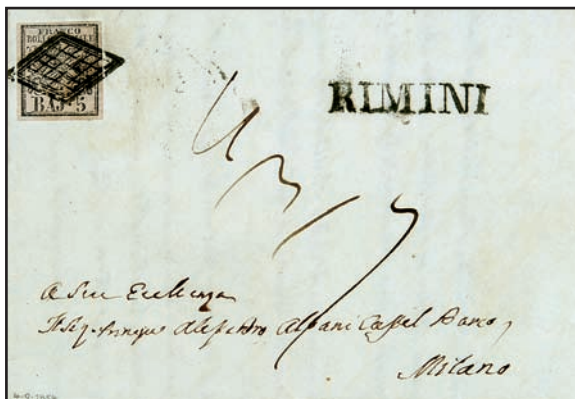 FRANCO
BOLLO
BAJ 5
RIMINI
A Sua Eccellenza
Il Sig. Principe Alessandro Albani Castel Barco
Milano